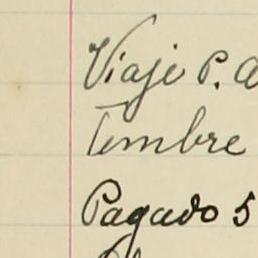 Viaje P. a
Timbre
Pagado 5